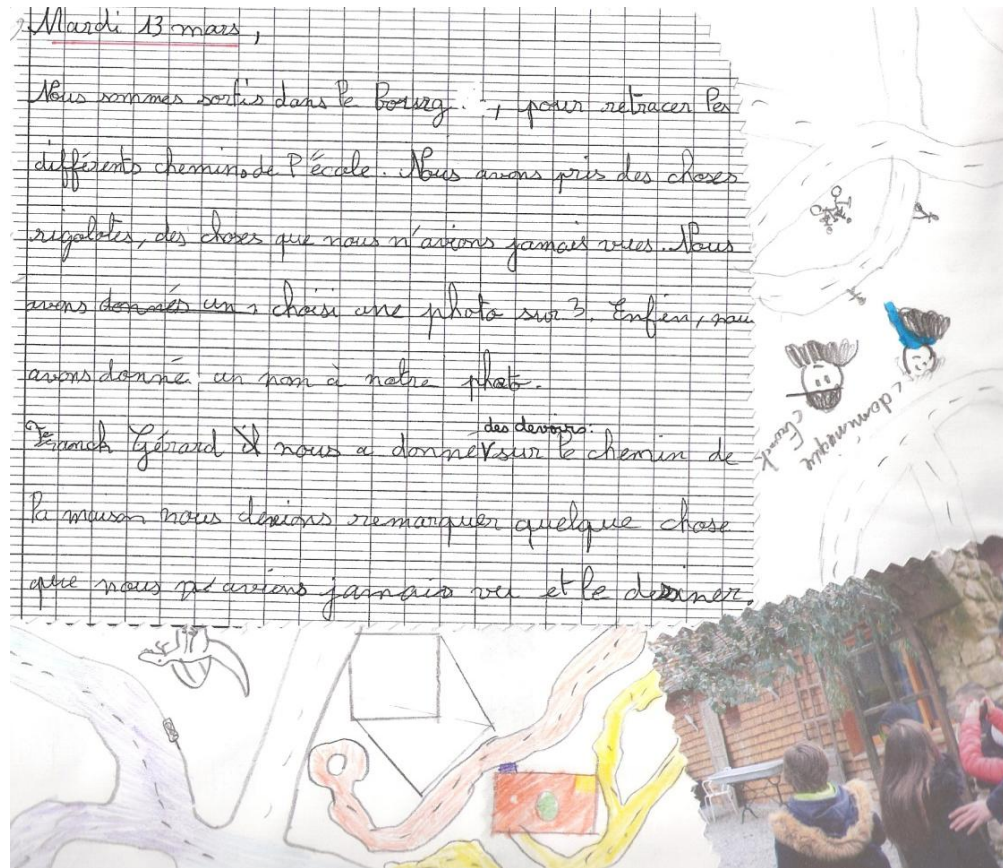 Mardi 13 mars,
Nous sommes sortis dans le Bourg , pour retracer les
différents chemins de l'école. Nous avons pris des choses
rigolotes, des choses que nous n'avions jamais vues. Nous
avons donnés un choisi une photo sur 3. Enfin, nous
avons donné un nom à notre phot.
des devoirs:
Franck Gérard il nous a donné sur le chemin de
la maison nous devions remarquer quelque chose
que nous n'avions jamais vu et le dessiner.
dominique